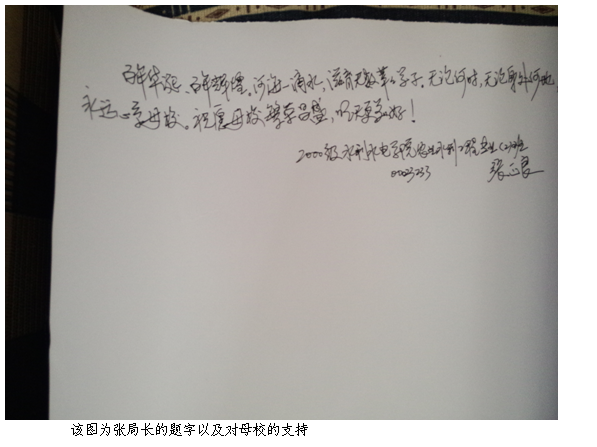 百年华诞、百年辉煌。河海一滴水,滋育无数莘莘学子。无论何时,无论身在何地,
永远心系母校。祝愿母校繁荣昌盛,明天更美好!
2000级水利水电学院农业水利工程专业(2)班
张
该图为张局长的题字以及对母校的支持